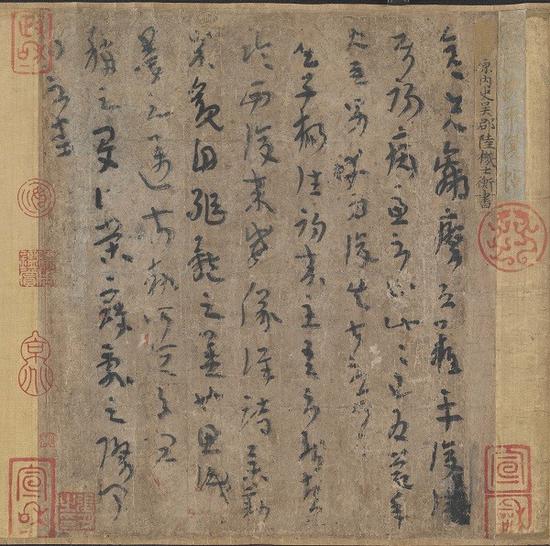 原内史吳郡陸機士衡書
彥先羸瘵恐難平復往
屬初病慮不止此此已為慶承
使唯男幸為復失前憂耳
吳子楊往初來主吾不能盡
臨西復來威儀詳跱舉動
成觀自軀體之美也思識
量之邁前勢所恒有宜
稱之夏伯榮寇亂之際聞
問不悉